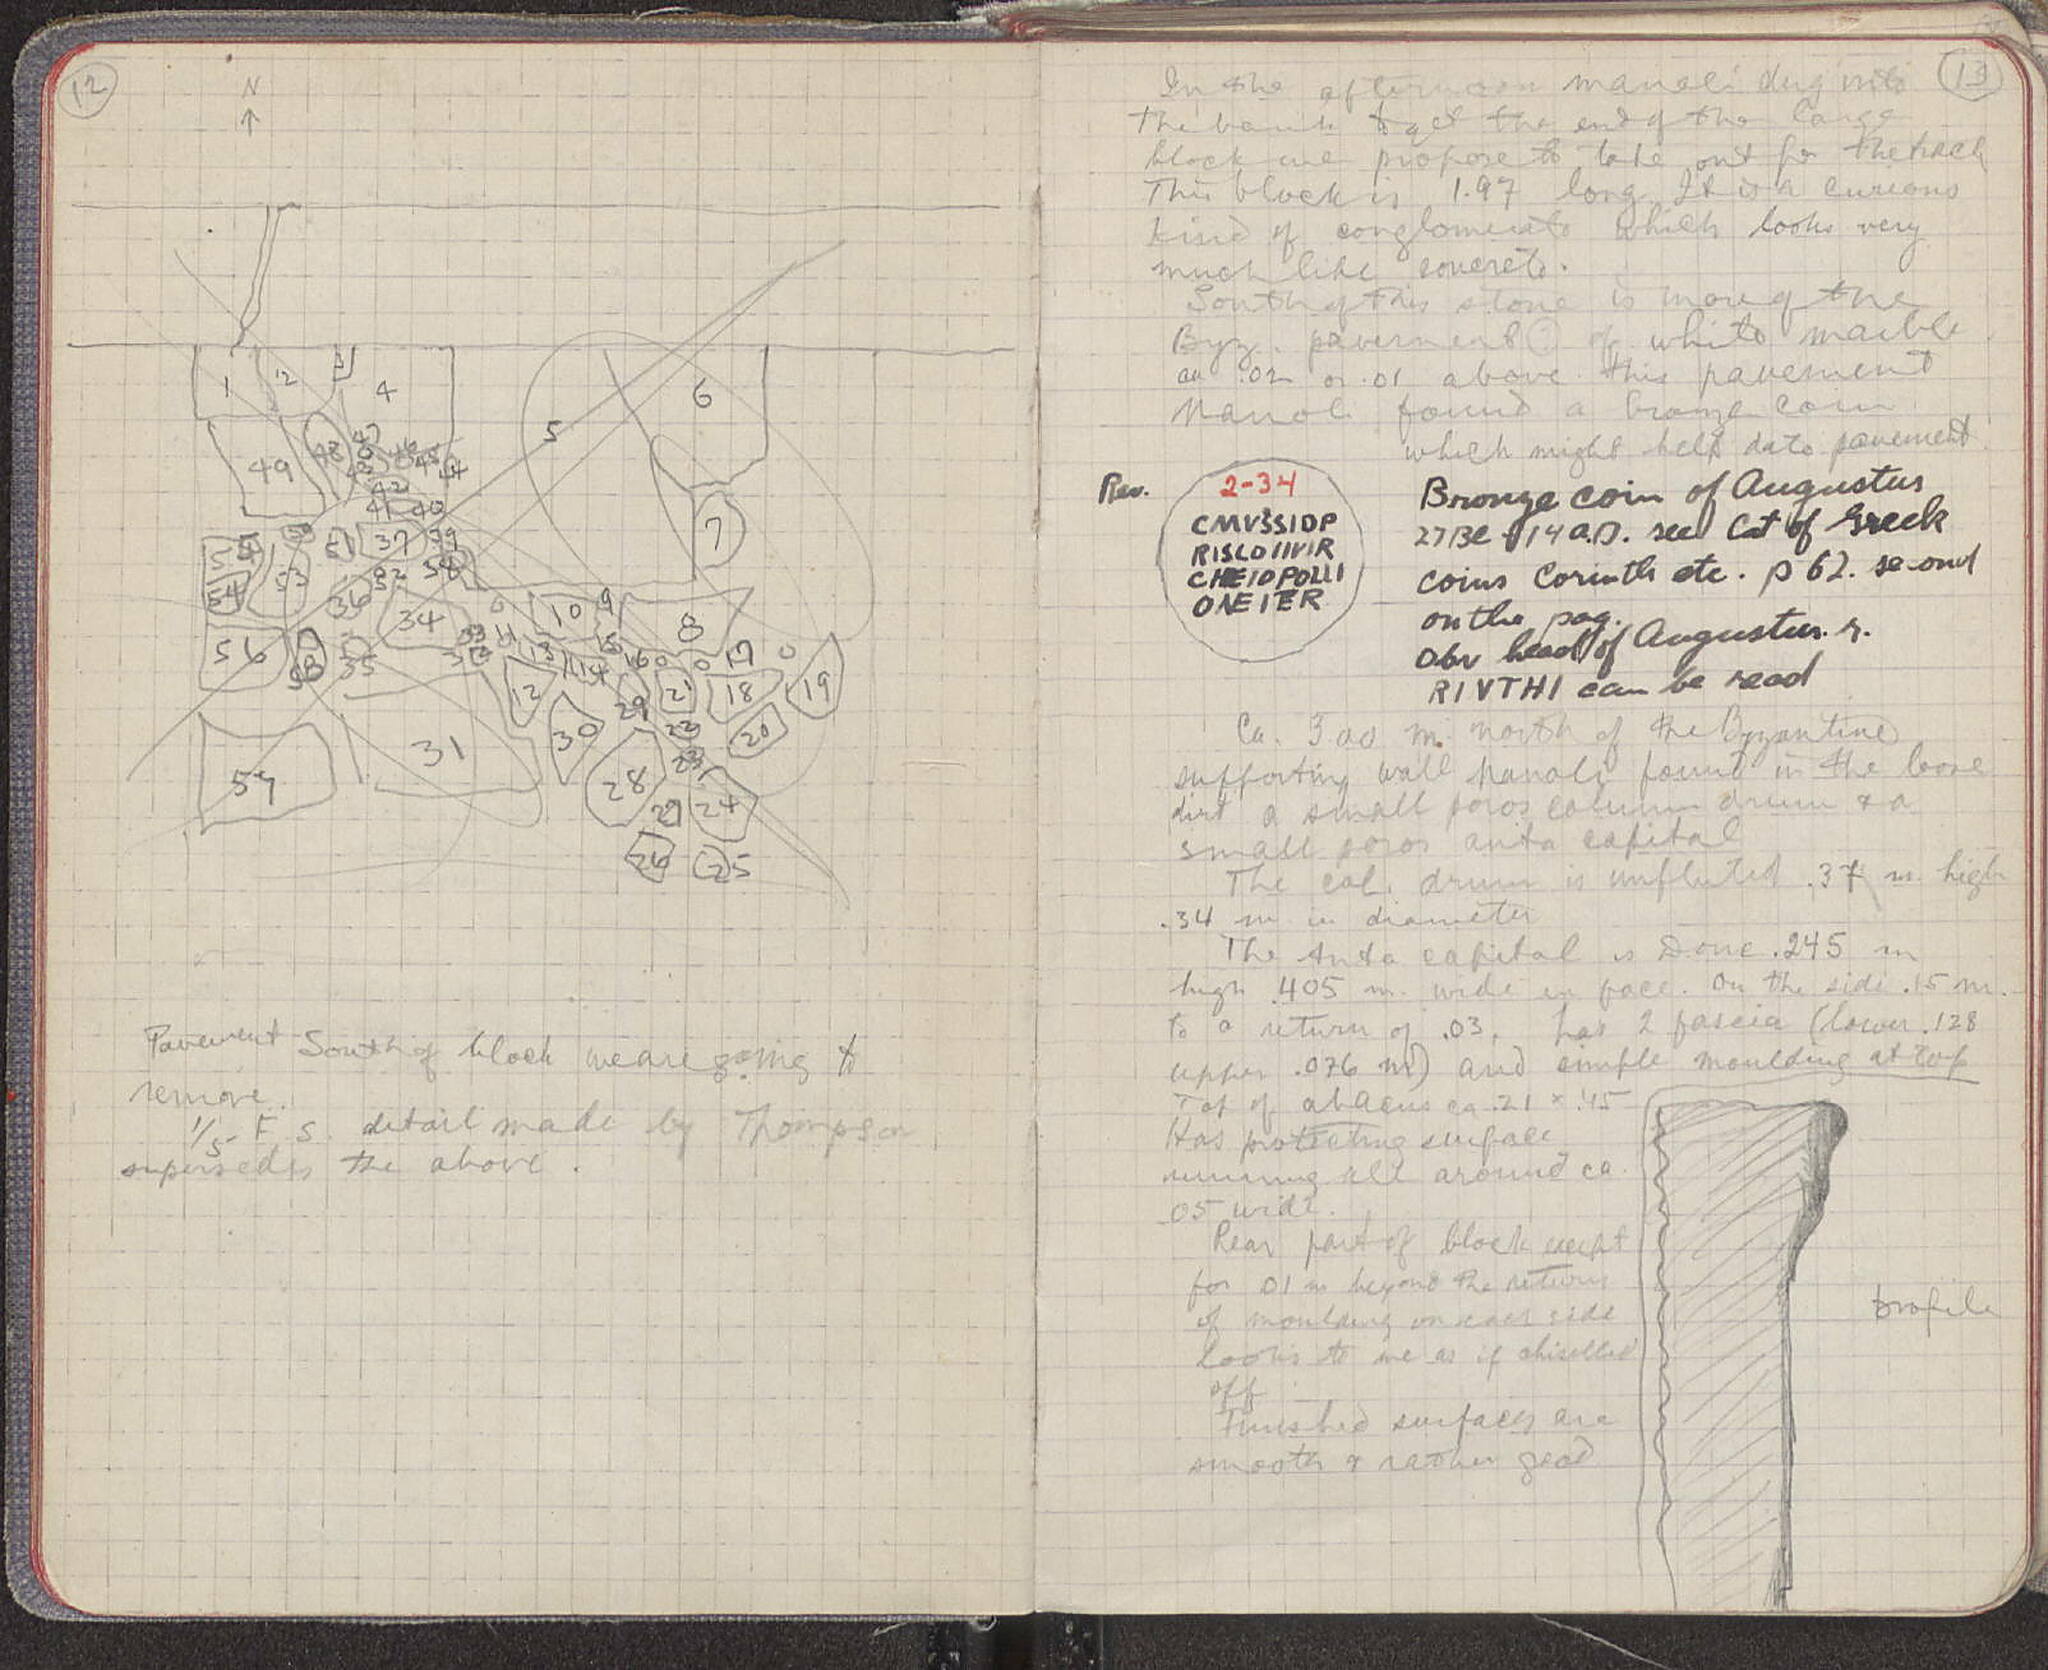 12
N
1
2
3
4
5
6
49
48
47
46
45
44
43
42
41
40
7
50
51
37
39
38
53
52
54
36
34
10
9
8
33
32
11
13
14
15
16
17
56
58
35
12
29
21
18
19
22
20
31
30
23
57
28
27
24
26
25
Pavement South of block we are going to
remove.
1/5 F. S. detail made by Thompson
supersedes the above.
13
In the afternoon Manoli dug into
the bank to get the end of the large
block we propose to take out for the track
This block is 1.97 long. It is a curious
kind of conglomerate which looks very
much like concrete.
South of this stone is more of the
Byz. pavement (?) of white marble
ca .02 or .01 above this pavement
Manoli found a bronze coin
which might help date pavement.
Rev.
2-34
CMVSSIDP
RISCOIIVIR
CHEIDPOLLI
ONEITER
Bronze coin of Augustus
27 BC - 14 A.D. see Cat of Greek
coins Corinth etc. p 62. second
on the pag.
Obv head of Augustus. r.
RIVTHI can be read
Ca. 3.00 m. north of the Byzantine
supporting wall Manoli found in the loose
dirt a small poros column drum & a
small poros anta capital
The col. drum is unfluted .37 m. high
.34 m in diameter
The Anta capital is Doric .245 m
high .405 m. wide in face. On the side .15 m.
to a return of .03. has 2 fascia (lower .128
upper .076 m) and simple moulding at top
Top of abacus ca .21 × .45
Has protecting surface
running all around ca.
.05 wide.
Rear part of block except
for .01 m beyond the returns
of moulding on each side
looks to me as if chiselled
off
Finished surfaces are
smooth & rather good
profile